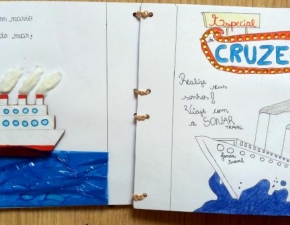 do mar,
Especial
CRUZE
Realize seus
sonhos!
Viaje com
a SONAR
TRAVEL